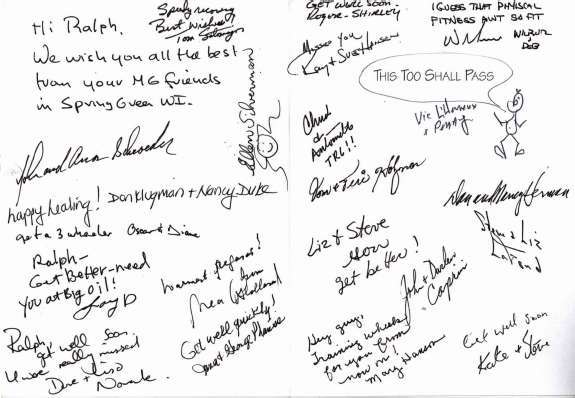 Hi Ralph,
We wish you all the best
from your MG friends
in Spring Green WI.
Speedy recovery
Best Wishes!
Tom
Ellen Silverman
John and Ann Schroeder
happy healing! Dan Klugman + Nancy Duke
get a 3 wheeler Oscar & Diane
Ralph -
Get Better - need
you at Big Oil!
Larry D
Warmest Regards!
Ralph,
get well soon.
U were really missed
Dave & Lisa
Novak
Get well quickly!
Janet & George
GET WELL SOON -
ROGER - SHIRLEY
Missed you
Kay & Sves Hansen
I GUESS THAT PHYSICAL
FITNESS AINT SO FIT
WILBUR
& DEB
THIS TOO SHALL PASS
Vic L'Heureux
& Penny
Chuck
&
Antoinette
TRG!!
Tom & Teri
Dan and Nancy Herman
Steve & Liz
Liz & Steve
get better!
John & Darlene
Caprini
Hey guy,
Training wheels
for you from
now on!
Mary Hanson
Get well soon
Kate & Steve